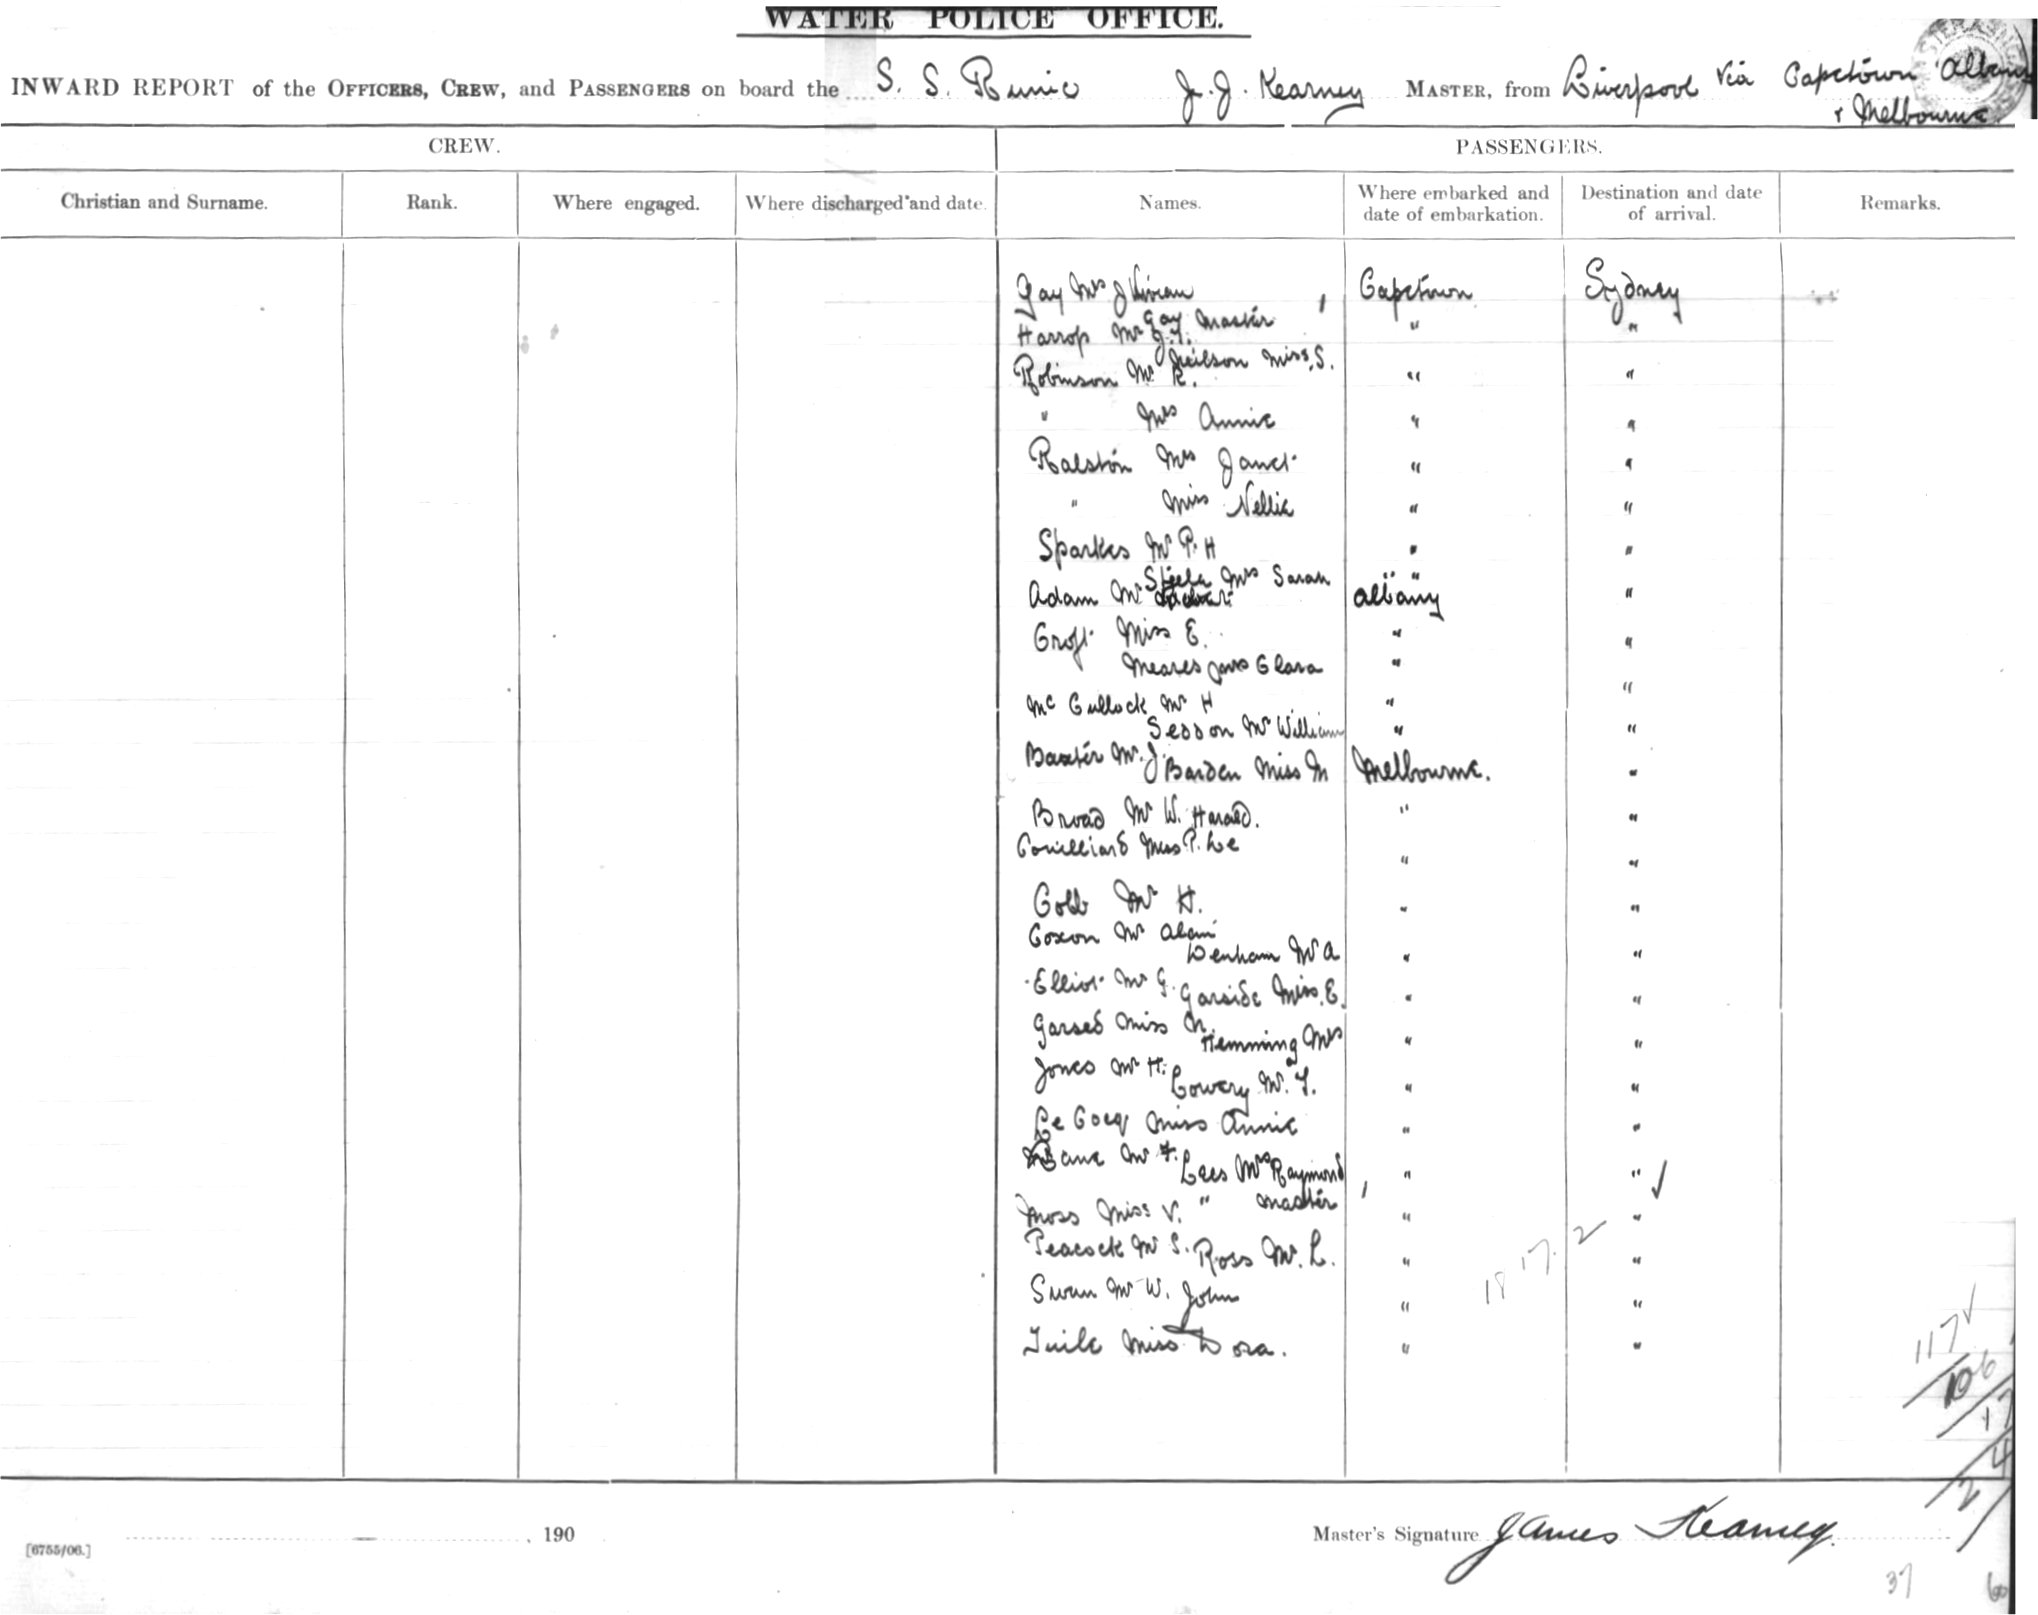 WATER POLICE OFFICE.
INWARD REPORT of the OFFICERS, CREW, and PASSENGERS on board the S. S. Runic J. J. Kearney MASTER, from Liverpool via Capetown Albany
& Melbourne
CREW. PASSENGERS.
Christian and Surname. Rank. Where engaged. Where discharged and date. Names. Where embarked and date of embarkation. Destination and date of arrival. Remarks.
Gay Mrs J Vivian Capetown Sydney
Gay Master
Harrop Mr J. T. " "
Neilson Miss S.
Robinson Mr R. " "
" Mrs Annie " "
Ralston Mrs Janet " "
" Miss Nellie " "
Sparkes Mr P. H " "
Steele Mrs Sarah " "
Adam Mr Albany "
Croft Miss E. " "
Meares Clara "
McCullock Mr H " "
Sesson Mr William " "
Baxter Mr. J. Barden Miss M Melbourne. "
Broad Mr W. Harold. " "
Couilliard Miss P. Le " "
Cobb Mr H. " "
Coxon Mr Alan
Denham Mr A " "
Elliot Mr G. Garside Miss. E. " "
Garsed Miss M. Hemming Mrs " "
Jones Mr H. Lowery Mr. T. " "
Le Cocq Miss Annie " "
Mr F. Lees Mrs Raymond " "
Moss Miss V. " Master " "
Peacock Mr S. Ross Mr. L. " "
Swan Mr W. John " "
Tuile Miss Dora. " "
18 17. 2
117
106
17
4
2
190
Master's Signature James Kearney.
[6755/06.]
37